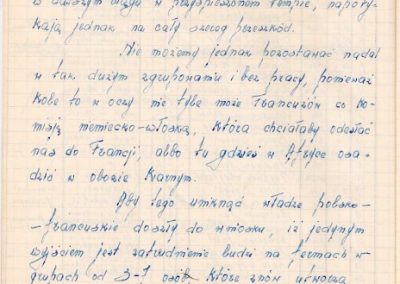 w dalszym ciągu w przyspieszonym tempie, napoty-
kają jednak na cały szereg przeszkód.
Nie możemy jednak pozostawać nadal
w tak dużym zgrupowaniu i bez pracy, ponieważ
kole to w oczy nie tylko może Francuzów co Ko-
misję niemiecko-włoską, która chciałaby odesłać
nas do Francji, albo tu gdzieś w Afryce osa-
dzić w obozie karnym.
Aby tego uniknąć władze polsko-
-francuskie doszły do wniosku, iż jedynym
wyjściem jest zatrudnienie ludzi na fermach w
grupach od 3-7 osób, które znów utworzą